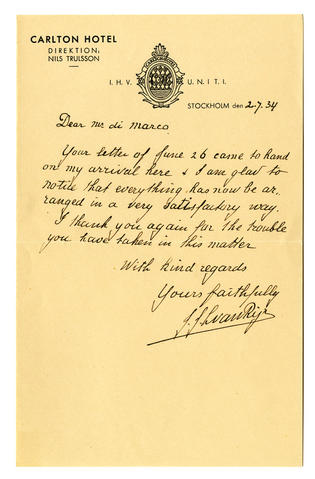 CARLTON HOTEL
DIREKTION:
NILS TRULSSON
I. H. V. U. N. I. T. I.
STOCKHOLM den 2.7.34
Dear Mr. di Marco
Your letter of June 26 came to hand
on my arrival here & I am glad to
notice that everything has now be ar.
ranged in a very satisfactory way.
I thank you again for the trouble
you have taken in this matter
With kind regards
Yours faithfully